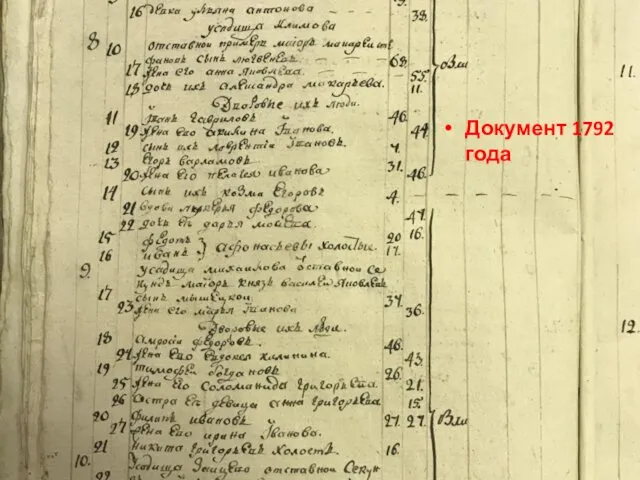 16 девка улiяна антонова 38.
усадища Климова
8 10 отставной примеръ маiоръ
68.
17 жена его анна яковлева. 55.
18 дочь ихъ александра макарьева. 11.
Дворовые ихъ люди.
11 Iванъ Гавриловъ 46.
19 жена ево акилина Iванова. 44.
12 сынъ ихъ лаврентiй Iвановъ. 4.
13 Егоръ варламовъ 31.
20 жена ево пелагея иванова 46.
14 сынъ ихъ козма Егоровъ 4.
21 вдова федорова 47.
22 дочь ее дарья 16.
15 федотъ 20
16 иванъ } афонасьевы холостые. 17.
9. усадища михаилова отставной се
17 кундъ маiоръ князь василей яковлевъ
сынъ мышецкой. 37.
23 жена его марья Iванова 36.
Дворовые ихъ люди.
18 амросiй федоровъ. 46.
24 жена ево евдокея калинина. 43.
19 тимофей богдановъ 26.
25 жена его соломанида григорьева. 21.
26 сестра ево девица анна григорьева 15.
20 филипъ ивановъ. 27. 27.
27 жена ево ирина Iванова.
21 никита григорьевъ холостъ. 16.
10. усадища отставной секун
11.
12.
• Документ 1792
года